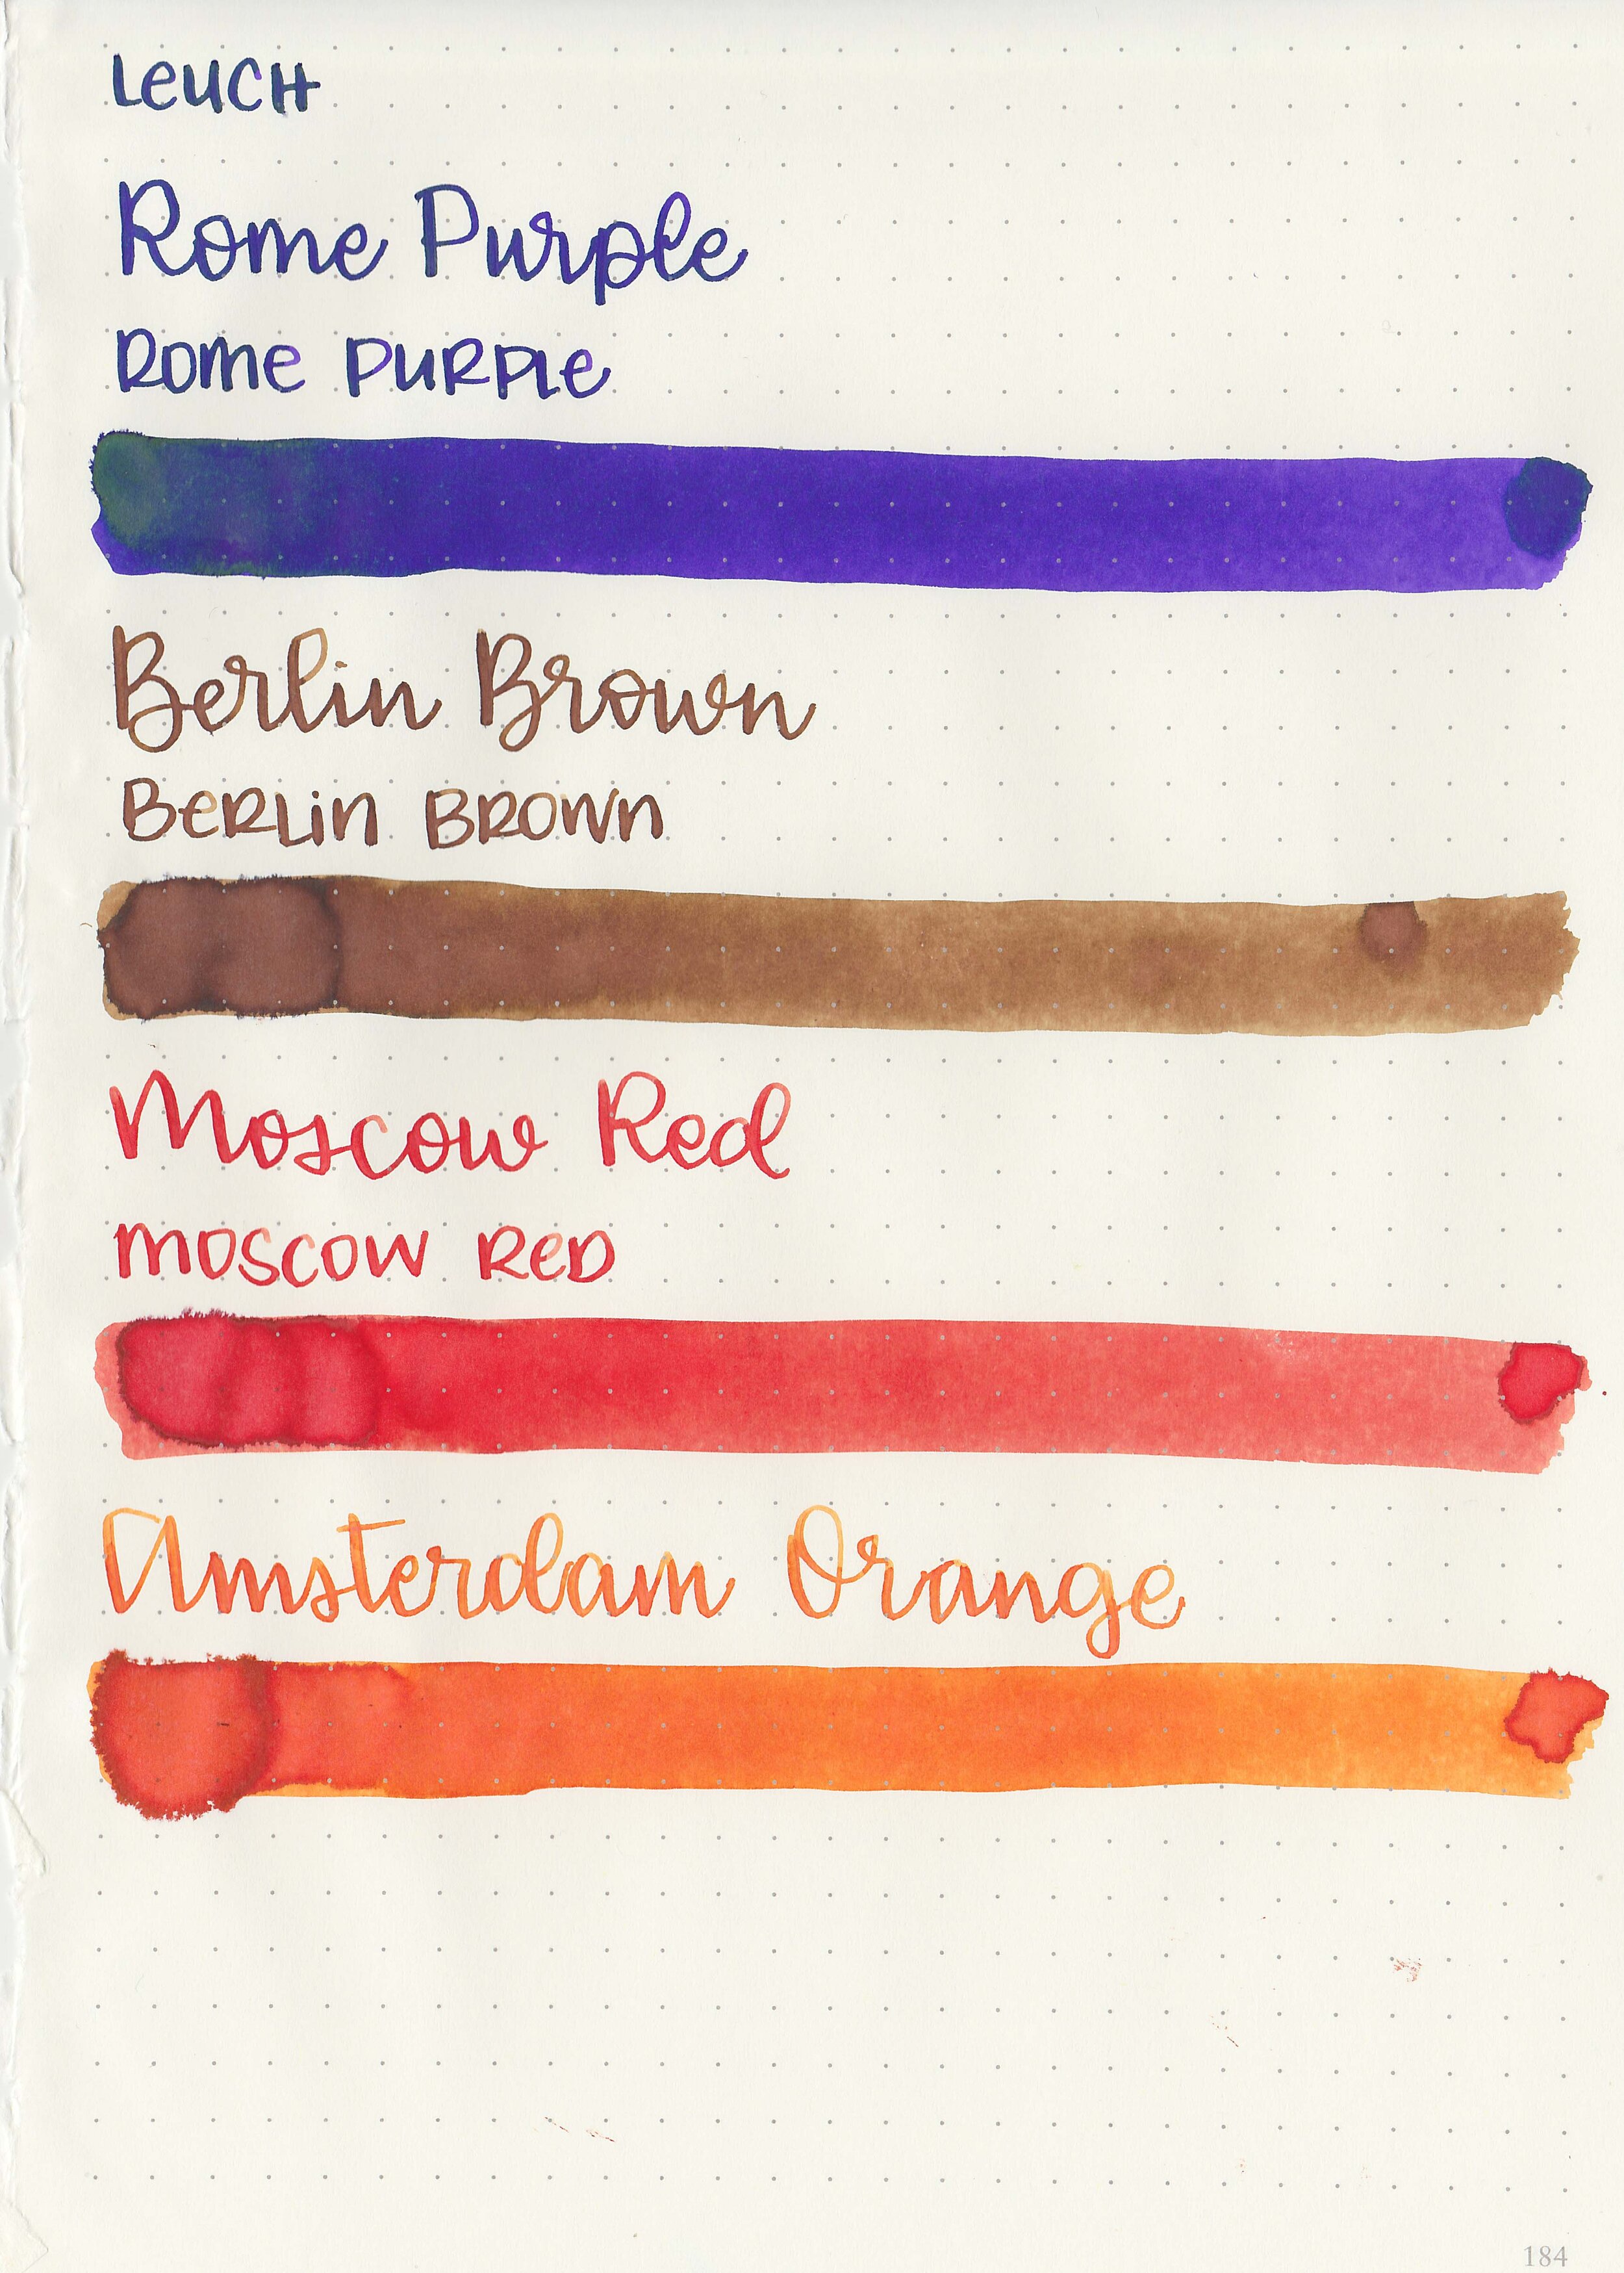 LEUCH
Rome Purple
ROME PURPLE
Berlin Brown
BERLIN BROWN
Moscow Red
MOSCOW RED
Amsterdam Orange
184